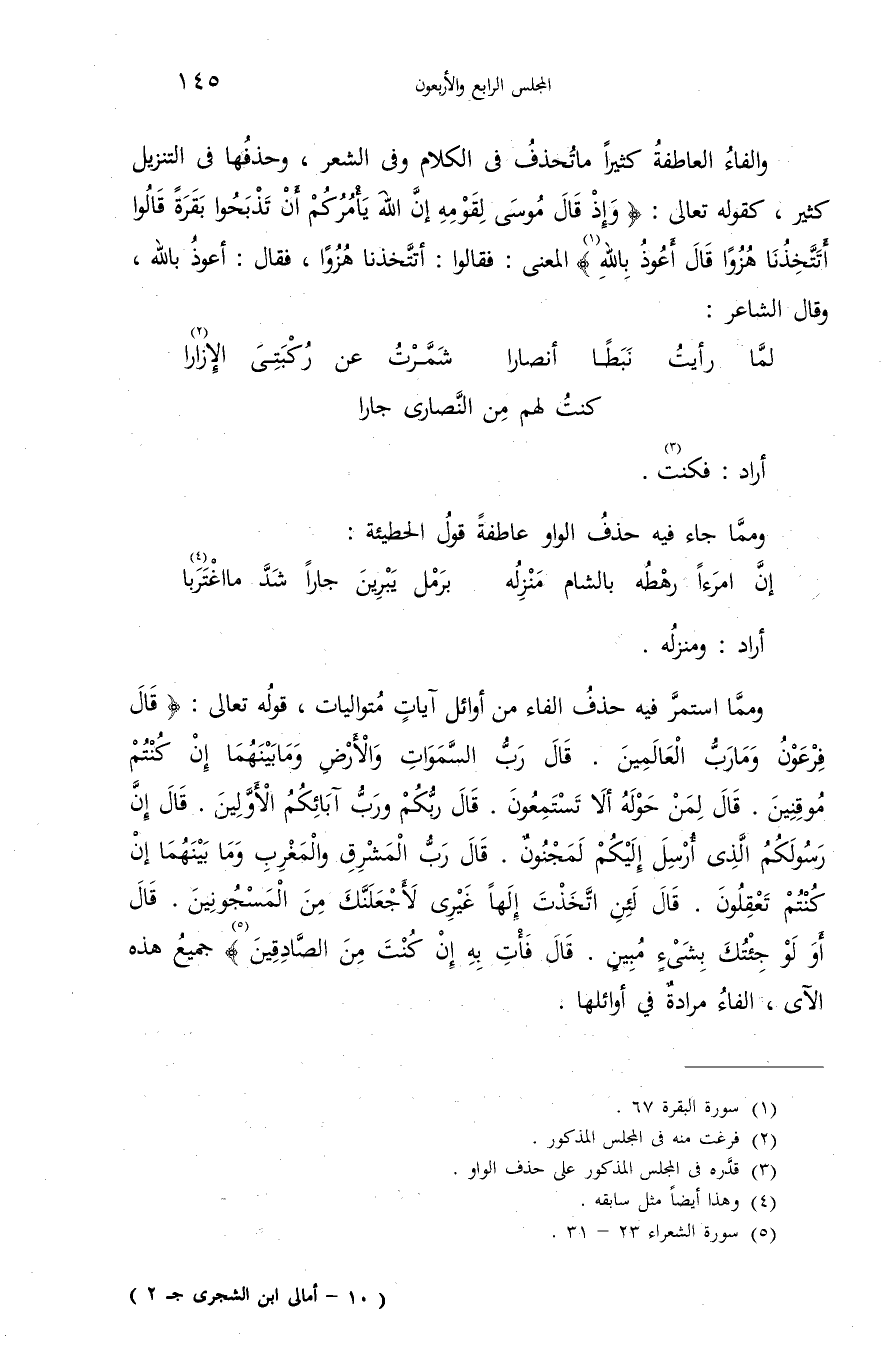 المجلس الرابع والأربعون ١٤٥
والفاءُ العاطفةُ كثيراً ماتُحذفُ فى الكلام وفى الشعر ، وحذفُها فى التنزيل
كثير ، كقوله تعالى : ﴿ وَإِذْ قَالَ مُوسَى لِقَوْمِهِ إِنَّ اللهَ يَأْمُرُكُمْ أَنْ تَذْبَحُوا بَقَرَةً قَالُوا
أَتَتَّخِذُنَا هُزُوًا قَالَ أَعُوذُ بِاللهِ ﴾(١) المعنى : فقالوا : أتتَّخذنا هُزُوًا ، فقال : أعوذُ بالله ،
وقال الشاعر :
لمَّا رأيتُ نَبَطًا أنصارا شَمَّرْتُ عن رُكْبَتِىَ الإِزارا(٢)
كنتُ لهم مِن النَّصارى جارا
أراد : فكنت(٣) .
وممَّا جاء فيه حذفُ الواو عاطفةً قولُ الحطيئة :
إنَّ امرَءاً رهْطُه بالشام مَنْزِلُه برَمْل يَبْرِينَ جاراً شَدَّ مااغْتَرَبا(٤)
أراد : ومنزلُه .
وممَّا استمرَّ فيه حذفُ الفاء من أوائل آياتٍ مُتواليات ، قولُه تعالى : ﴿ قَالَ
فِرْعَوْنُ وَمَارَبُّ الْعَالَمِينَ . قَالَ رَبُّ السَّمَوَاتِ وَالْأَرْضِ وَمَابَيْنَهُمَا إِنْ كُنْتُمْ
مُوقِنِينَ . قَالَ لِمَنْ حَوْلَهُ أَلَا تَسْتَمِعُونَ . قَالَ رَبُّكُمْ وَرَبُّ آبَائِكُمُ الْأَوَّلِينَ . قَالَ إِنَّ
رَسُولَكُمُ الَّذِى أُرْسِلَ إِلَيْكُمْ لَمَجْنُونٌ . قَالَ رَبُّ الْمَشْرِقِ والْمَغْرِبِ وَمَا بَيْنَهُمَا إنْ
كُنْتُمْ تَعْقِلُونَ . قَالَ لَئِنِ اتَّخَذْتَ إِلَهاً غَيْرِى لَأَجْعَلَنَّكَ مِنَ الْمَسْجُونِينَ . قَالَ
أَوَ لَوْ جِئْتُكَ بِشَىْءٍ مُبِينٍ . قَالَ فَأْتِ بِهِ إِنْ كُنْتَ مِنَ الصَّادِقِينَ ﴾(٥) جميعُ هذه
الآى ، الفاءُ مرادةٌ في أوائلها .
(١) سورة البقرة ٦٧ .
(٢) فرغت منه فى المجلس المذكور .
(٣) قدَّره فى المجلس المذكور على حذف الواو .
(٤) وهذا أيضاً مثل سابقه .
(٥) سورة الشعراء ٢٣ – ٣١ .
( ١٠ – أمالى ابن الشجرى جـ ٢ )